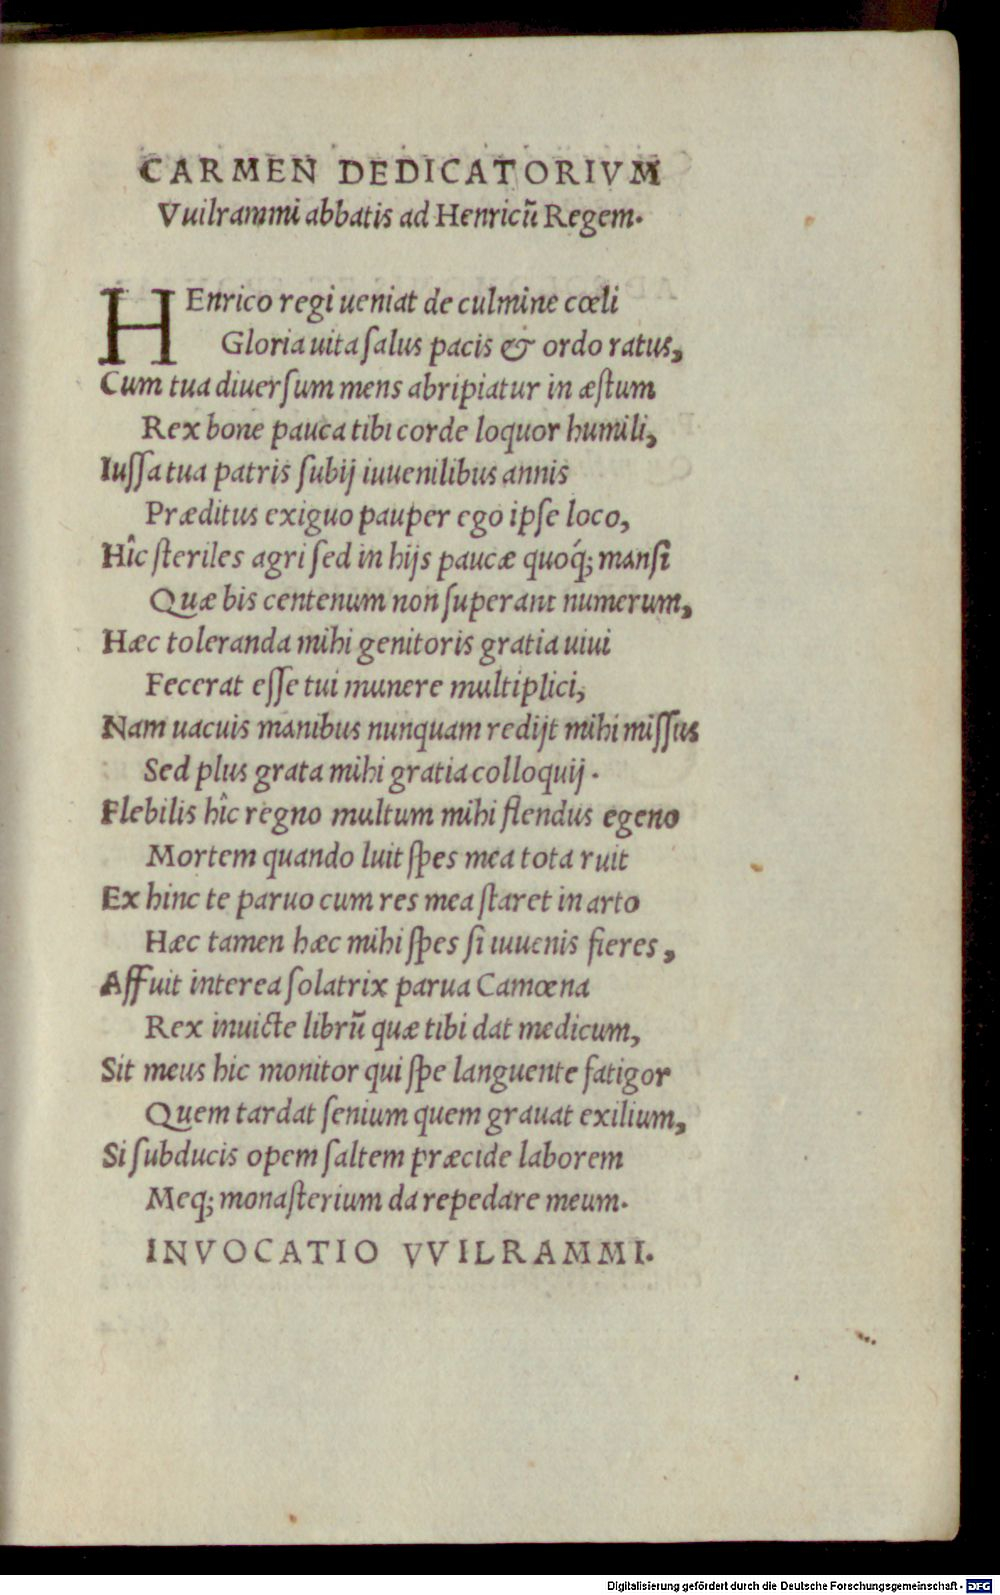 CARMEN DEDICATORIVM
Vuilrammi abbatis ad Henricũ Regem.
HEnrico regi ueniat de culmine cœli
Gloria uita ſalus pacis & ordo ratus,
Cum tua diuerſum mens abripiatur in æſtum
Rex bone pauca tibi corde loquor humili,
Iuſſa tua patris ſubij iuuenilibus annis
Præditus exiguo pauper ego ipſe loco,
Hîc ſteriles agri ſed in hijs paucæ quoq́; manſi
Quæ bis centenum non ſuperant numerum,
Hæc toleranda mihi genitoris gratia uiui
Fecerat eſſe tui munere multiplici,
Nam uacuis manibus nunquam redijt mihi miſſus
Sed plus grata mihi gratia colloquij.
Flebilis hîc regno multum mihi flendus egeno
Mortem quando luit ſpes mea tota ruit
Ex hinc te paruo cum res mea ſtaret in arto
Hæc tamen hæc mihi ſpes ſi iuuenis fieres,
Affuit interea ſolatrix parua Camœna
Rex inuicte librũ quæ tibi dat medicum,
Sit meus hic monitor qui ſpe languente fatigor
Quem tardat ſenium quem grauat exilium,
Si ſubducis opem ſaltem præcide laborem
Meq; monaſterium da repedare meum.
INVOCATIO VVILRAMMI.
Digitalisierung gefördert durch die Deutsche Forschungsgemeinschaft - DFG